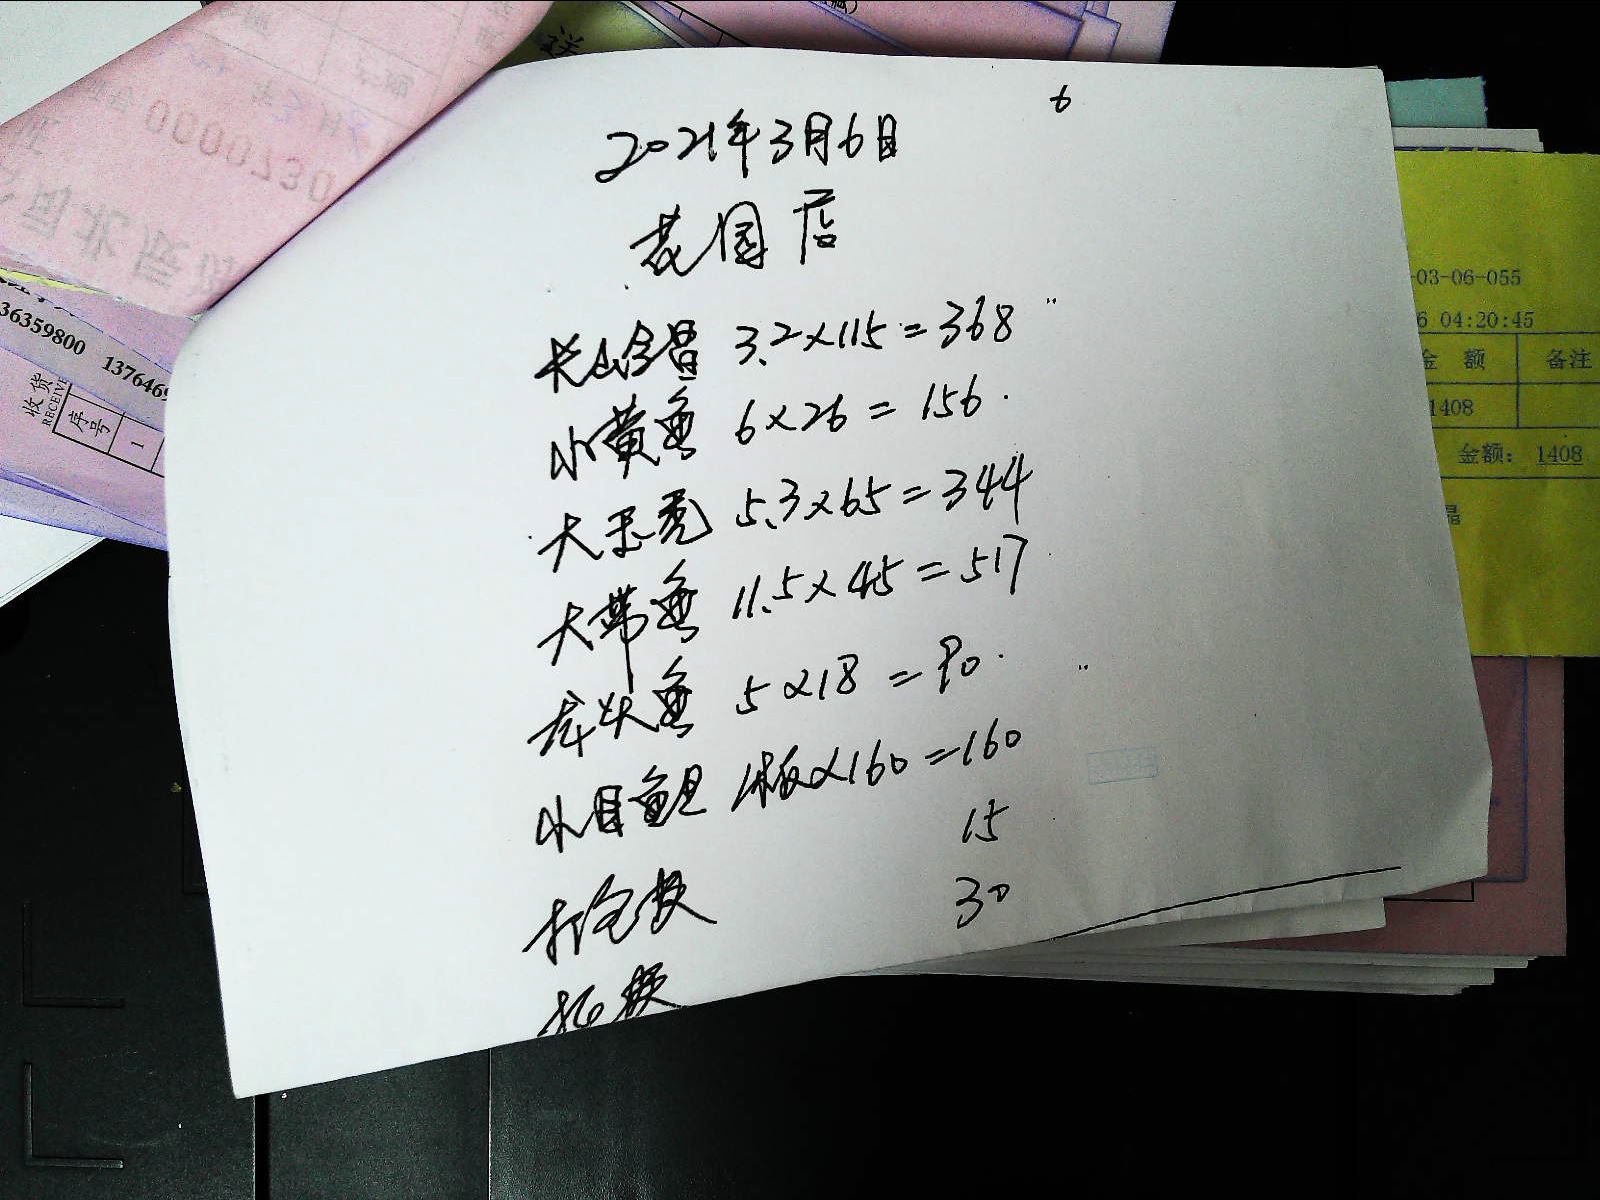 6
2021年3月6日
花园店
长山仓昌 3.2×115=368
小黄鱼 6×26=156
大玉秃 5.3×65=344
大带鱼 11.5×45=517
龙头鱼 5×18=90
小目鱼旦 1板×160=160
15
打包费
30
托费
送
0000730
36359800 1376469
收货
RECEIVE
序号
1
-03-06-055
6 04:20:45
金 额 备注
1408
金额: 1408